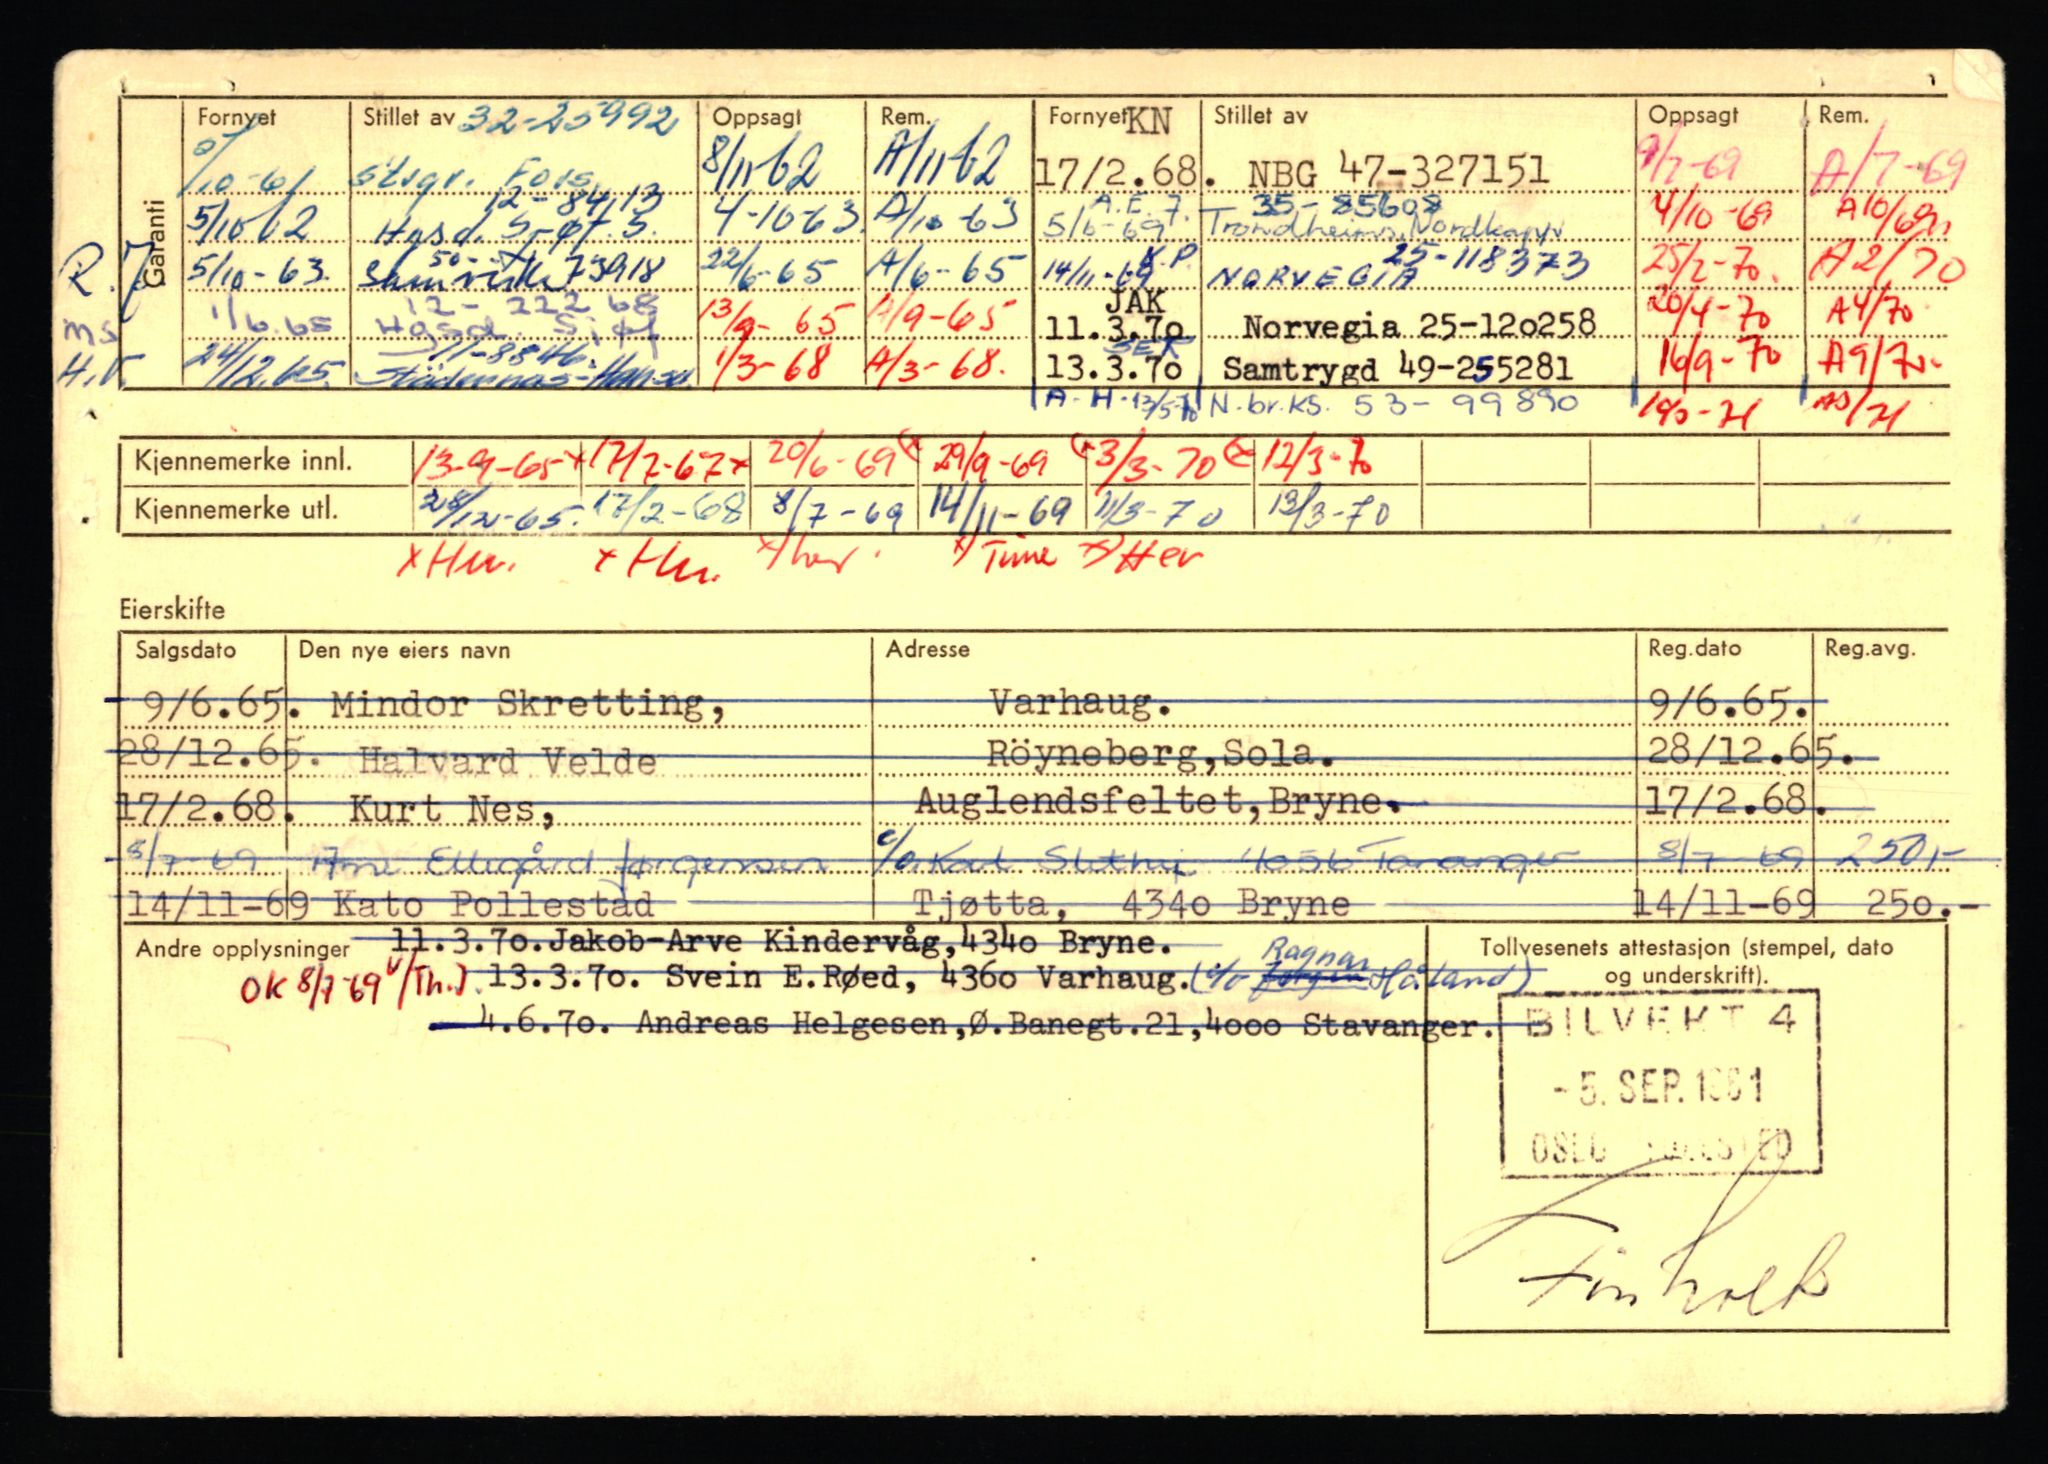 Garanti
Fornyet Stillet av 32-25992 Oppsagt Rem. Fornyet KN Stillet av Oppsagt Rem.
/10-61 Stvgr. Fors. 8/11-62 A/11-62 17/2.68. NBG 47-327151 /7-69 A/7-69
12-84113 A.E.7. 35-85608
5/10 62 Hgsd. Sjøf. S. 4-10-63 A/10-63 5/6-69 Trondheims Nordkapp 4/10-69 A10/69
R.J 50-73918 K.P. 25-118373
5/10-63. Samvirke 22/6-65 A/6-65 14/11-69 NORVEGIA 25/2-70. A2/70
ms 12-22268 JAK
1/6.65 Hgsd. Sjøf 13/9-65 A/9-65 11.3.7o Norvegia 25-12o258 20/4-70 A4/70
H.V. 71-8846. SER
24/12.65. Städernas-Hansa 1/3-68 A/3-68. 13.3.7o Samtrygd 49-255281 16/9-70 A9/70.
A-H-13/5-70 N.br.ks. 53-99890
Kjennemerke innl. 13-9-65x 17/7-67x 20/6-69 (x 29/9-69 (x 3/3-70 (x 12/3-70
Kjennemerke utl. 28/12-65. 17/2-68 8/7-69 14/11-69 11/3-70 13/3-70
x) Time x) Her
Eierskifte
Salgsdato Den nye eiers navn Adresse Reg.dato Reg.avg.
9/6.65. Mindor Skretting, Varhaug. 9/6.65.
28/12.65. Halvard Velde Röyneberg,Sola. 28/12.65.
17/2.68. Kurt Nes, Auglendsfeltet,Bryne. 17/2.68.
8/7-69 Arne Ellegård Jørgensen c/o 4056 Tananger 8/7-69 250,-
14/11-69 Kato Pollestad Tjøtta, 434o Bryne 14/11-69 25o.-
Andre opplysninger 11.3.7o.Jakob-Arve Kindervåg,434o Bryne.
OK 8/7-69 /Th.). 13.3.7o. Svein E.Røed, 436o Varhaug. (c/o Ragnar Håland)
4.6.7o. Andreas Helgesen,Ø.Banegt.21,4ooo Stavanger.
Tollvesenets attestasjon (stempel, dato
og underskrift).
BILVEKT 4
-5. SEP. 1961
OSLO